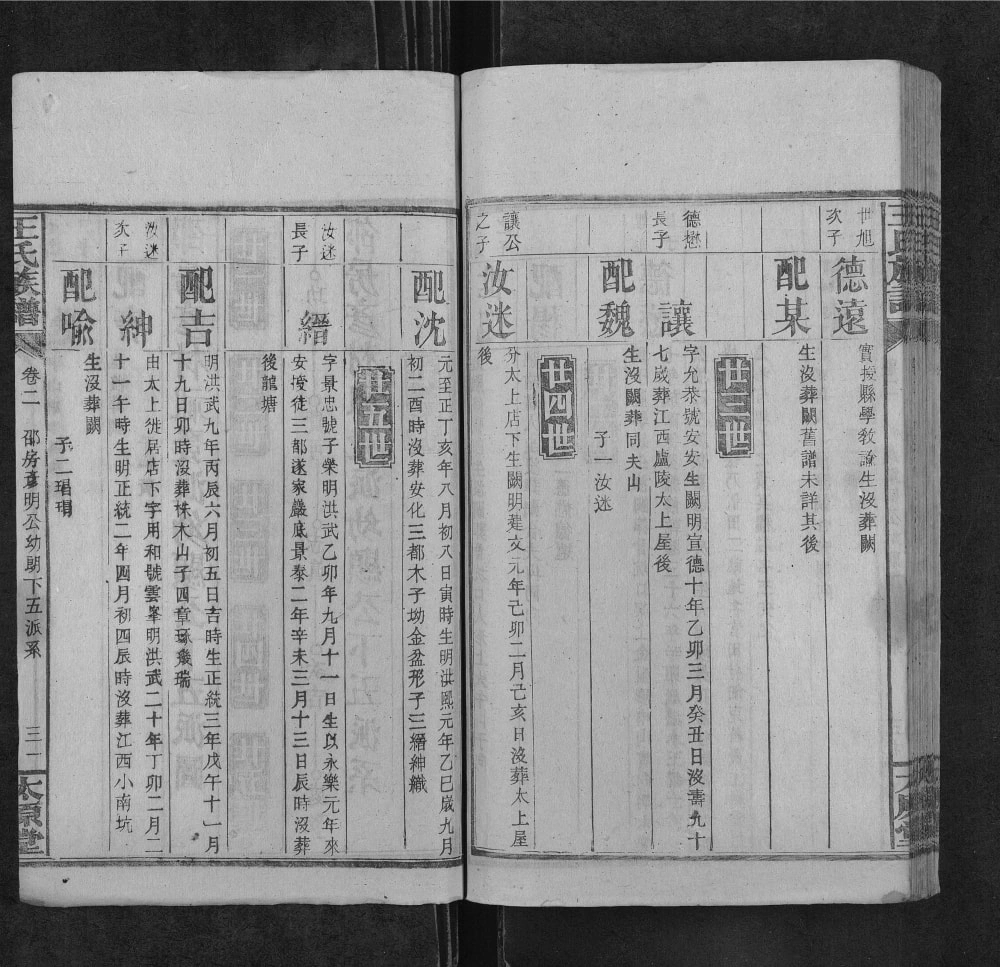 世旭
次子
德遠
實授縣學教諭生沒葬闕
配某
生沒葬闕舊譜未詳其後
廿三世
德懋
長子
讓
字允恭號安安生闕明宣德十年乙卯三月癸丑日沒壽九十
七歲葬江西廬陵太上屋後
配魏
生沒闕葬同夫山
子一汝迷
廿四世
讓公
之子
汝迷
分太上店下生闕明建文元年己卯二月己亥日沒葬太上屋
後
配沈
元至正丁亥年八月初八日寅時生明洪熙元年乙巳歲九月
初二酉時沒葬安化三都木子坳金盆形子三縉紳織
廿五世
汝迷
長子
縉
字景忠號子榮明洪武乙卯年九月十一日生以永樂元年來
安授徒三都遂家巖底景泰二年辛未三月十三日辰時沒葬
後龍塘
配吉
明洪武九年丙辰六月初五日吉時生正統三年戊午十一月
十九日卯時沒葬株木山子四章琢幾瑞
汝迷
次子
紳
由太上徙居店下字用和號雲峯明洪武二十年丁卯二月二
十一午時生明正統二年四月初四辰時沒葬江西小南坑
配喻
生沒葬闕
子二琩琄
王氏族譜
卷二
邵房彥明公幼朗下五派系
三一
太原堂